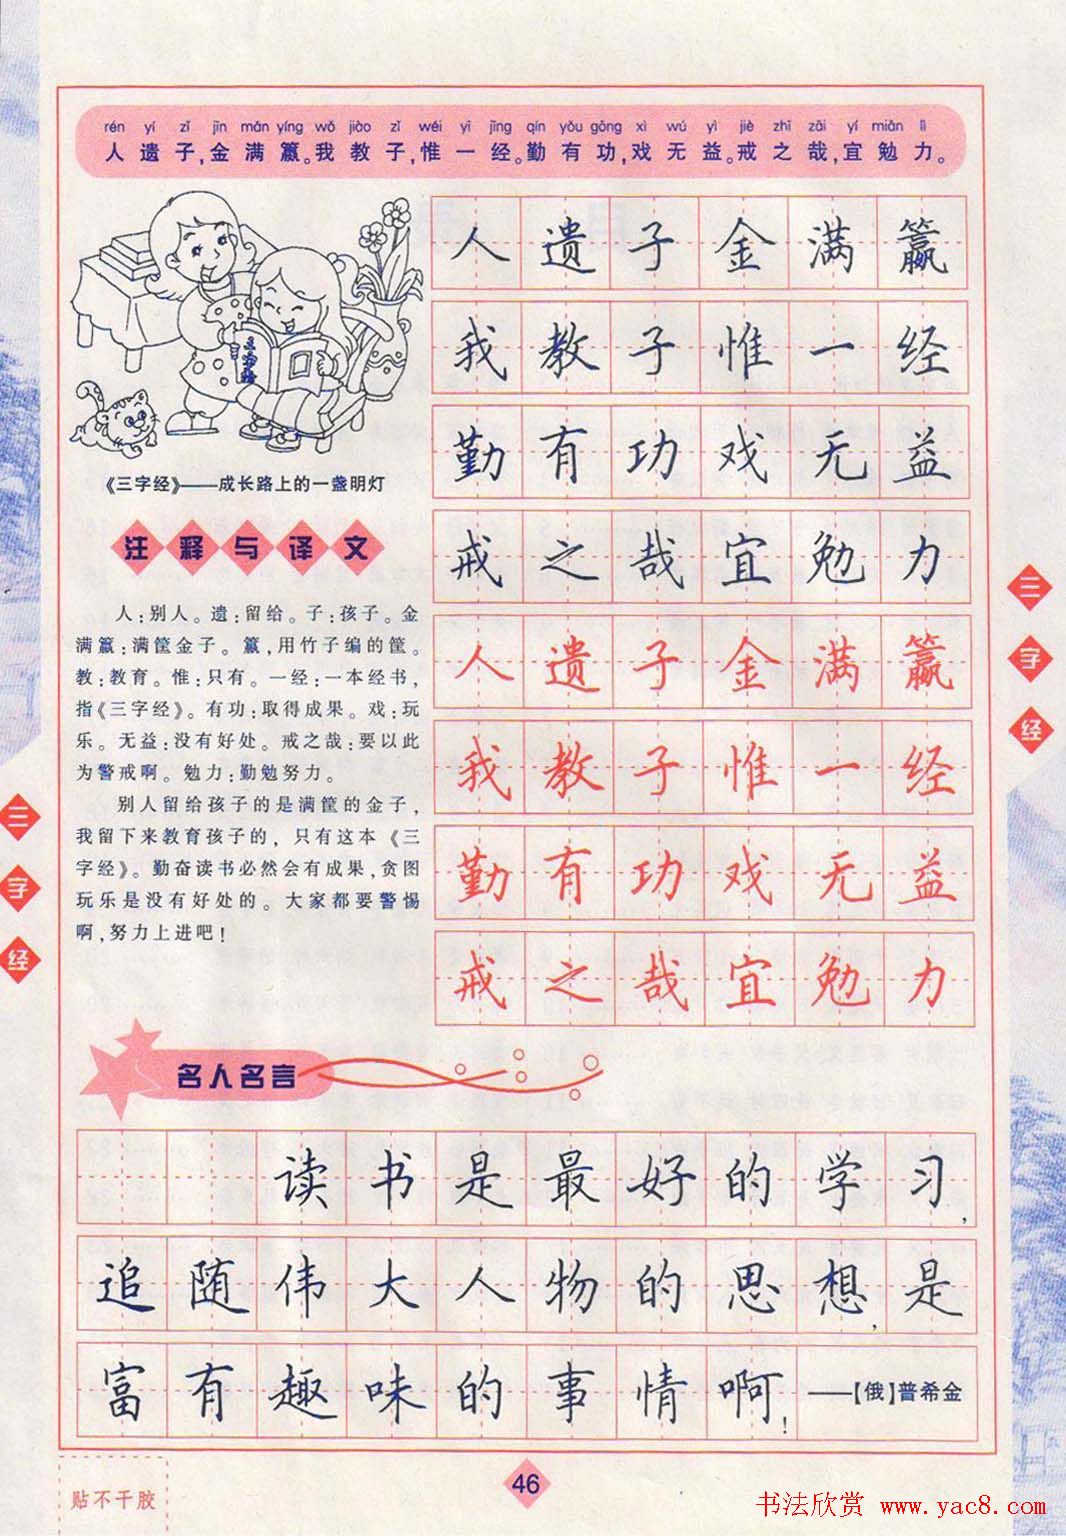 rén yí zǐ jīn mǎn yíng wǒ jiào zǐ wéi yī jīng qín yǒu gōng xì wú yì jiè zhī zāi yí miǎn lì
人遗子,金满籯。我教子,惟一经。勤有功,戏无益。戒之哉,宜勉力。
人遗子金满籯
我教子惟一经
勤有功戏无益
戒之哉宜勉力
人遗子金满籯
我教子惟一经
勤有功戏无益
戒之哉宜勉力
三字经
《三字经》——成长路上的一盏明灯
注释与译文
人:别人。遗:留给。子:孩子。金
满籯:满筐金子。籯,用竹子编的筐。
教:教育。惟:只有。一经:一本经书,
指《三字经》。有功:取得成果。戏:玩
乐。无益:没有好处。戒之哉:要以此
为警戒啊。勉力:勤勉努力。
别人留给孩子的是满筐的金子,
我留下来教育孩子的,只有这本《三
字经》。勤奋读书必然会有成果,贪图
玩乐是没有好处的。大家都要警惕
啊,努力上进吧!
三字经
三字经
名人名言
读书是最好的学习,
追随伟大人物的思想,是
富有趣味的事情啊!——【俄】普希金
46
贴不干胶
书法欣赏 www.yac8.com